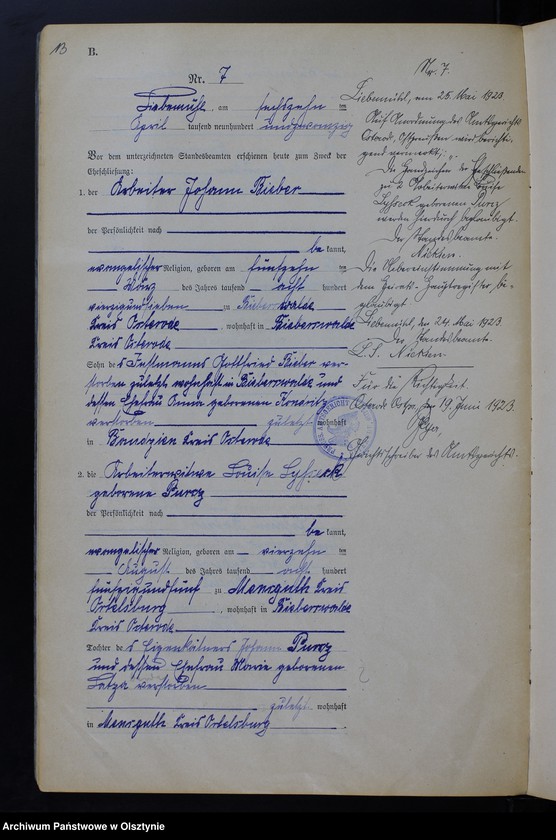 13 B.
Nr. 7
Liebemühl, am sechszehn ten
April tausend neunhundert undzwanzig
Vor dem unterzeichneten Standesbeamten erschienen heute zum Zweck der
Eheschließung:
1. der Arbeiter Johann Bieber
der Persönlichkeit nach
be kannt,
evangelischer Religion, geboren am fünfzehn ten
März des Jahres tausend acht hundert
vierzigundsieben zu Bieberswalde
Kreis Osterode, wohnhaft in Bieberswalde
Kreis Osterode
Sohn des Instmanns Gottfried Bieber ver-
storben zuletzt wohnhaft in Bieberswalde und
dessen Ehefrau Anna geborenen
verstorben zuletzt wohnhaft
in Kreis Osterode
2. die Arbeiterwitwe Louise Lyssek
geborene Puroz
der Persönlichkeit nach
be kannt,
evangelischer Religion, geboren am vierzehn ten
August des Jahres tausend acht hundert
fünfzigundfünf zu Mensguth Kreis
Ortelsburg, wohnhaft in Bieberswalde
Kreis Osterode
Tochter des Eigenkätners Johann Puroz
und dessen Ehefrau Marie geborenen
verstorben
zuletzt wohnhaft
in Mensguth Kreis Ortelsburg
Nr. 7.
Liebemühl, am 25. Mai 1923
Auf Anordnung des Amtsgerichts
Osterode, Ostpreußen wird berichti-
gend vermerkt:
Die Handzeichen der Eheschließenden
zu 2 Arbeiterwitwe Louise
Lyssek geborenen Puroz
werden hierdurch beglaubigt.
Der Standesbeamte.
Die Uebereinstimmung mit
dem Haupt-register be-
glaubigt
Liebemühl, den 24. Mai 1923
Der Standesbeamte.
Für die Richtigkeit.
Osterode Ostpr., den 19. Juni 1923.
Gerichtsschreiber des Amtsgerichts.
Archiwum Państwowe w Olsztynie